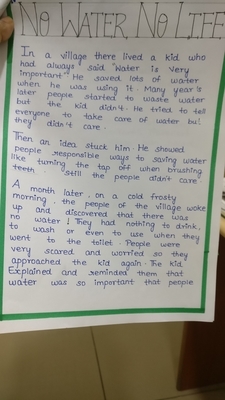 NO WATER, NO LIFE
In a village there lived a kid who
had always said "Water is very
important". He saved lots of water
when he was using it. Many year's
later people started to waste water
but the kid didn't. He tried to tell
everyone to take care of water but
they didn't care.
Then an idea stuck him. He showed
people responsible ways to saving water
like turning the tap off when brushing
teeth. "Still the people didn't care"
A month later, on a cold frosty
morning, the people of the village woke
up and discovered that there was
no water! They had nothing to drink,
to wash or even to use when they
went to the toilet. People were
very scared and worried so they
approached the kid again. The kid
Explained and reminded them that
water was so important that people